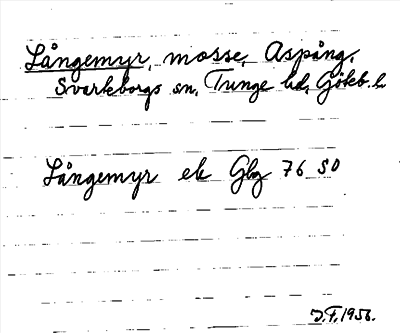 Långemyr, mosse, Aspång,
Svarteborgs sn, Tunge hd, Göteb. l.
Långemyr ek Gbg 76 SO
J.F. 1956.